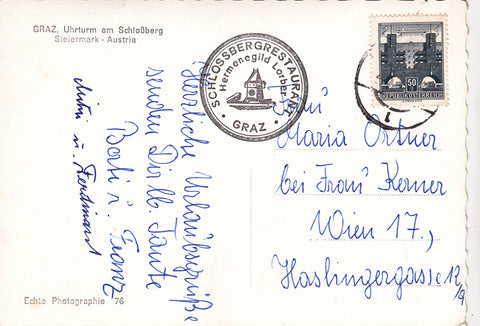 GRAZ, Uhrturm am Schloßberg
Steiermark - Austria
SCHLOSSBERGRESTAURANT
Hermenegild Lorber
· GRAZ ·
50
REPUBLIK ÖSTERREICH
1
Herzliche Urlaubsgrüße
senden Dir lb. Tante
Berti u. Franz
u. Ferdinand
Frau
Maria Ortner
bei Frau Kerner
Wien 17.,
Haslingergasse 12/9
Echte Photographie 76